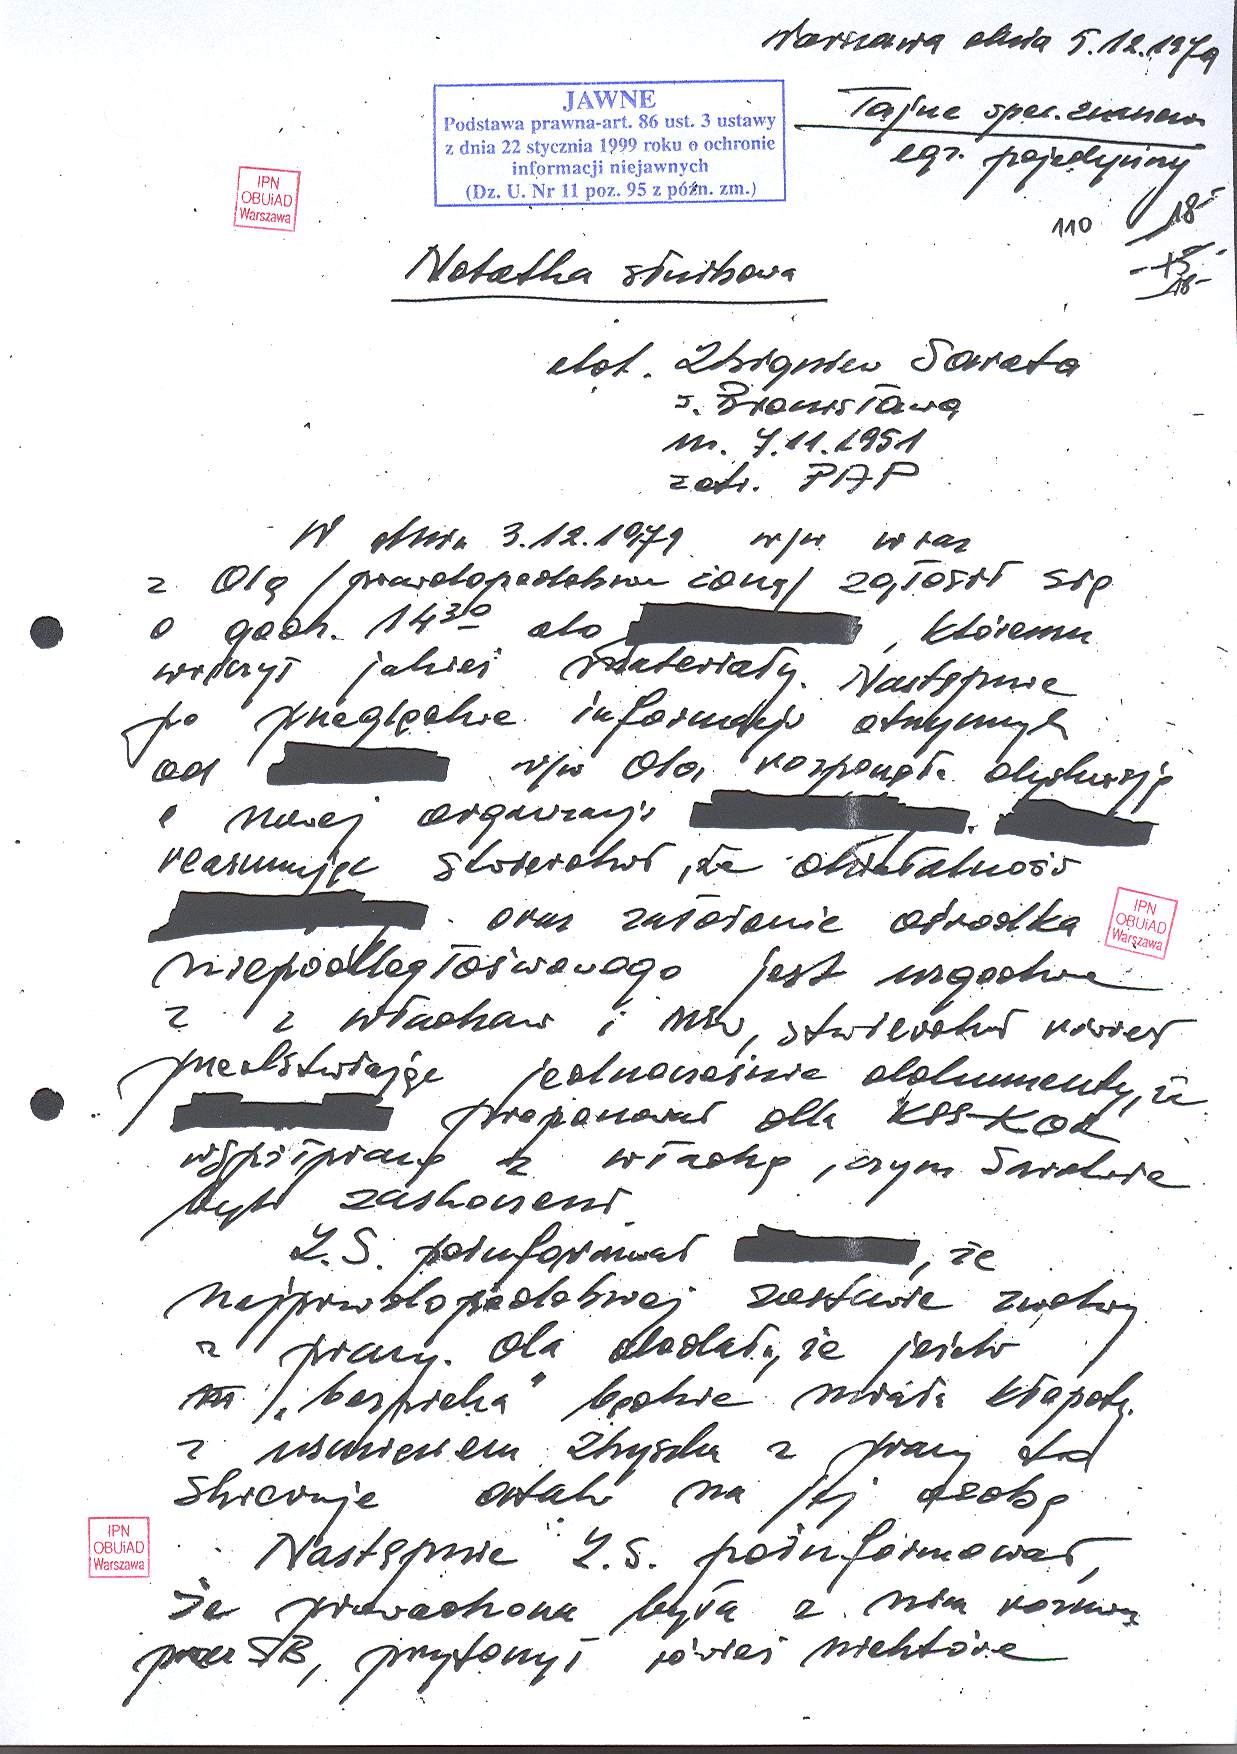 Warszawa dnia 5.12.1979
Tajne spec. znaczenia
egz. pojedynczy
JAWNE
Podstawa prawna-art. 86 ust. 3 ustawy
z dnia 22 stycznia 1999 roku o ochronie
informacji niejawnych
(Dz. U. Nr 11 poz. 95 z późn. zm.)
IPN
OBUiAD
Warszawa
110
18
Notatka służbowa
dot. Zbigniew Sarata
s. Bronisława
ur. 7.11.1951
zatr. PAP
W dniu 3.12.1979 w/w wraz
z Olą /prawdopodobnie żoną/ zgłosił się
o godz. 14 30 do , któremu
wręczył jakieś materiały. Następnie
po przeglądnie informacji otrzymych
od w/w Ola, rozpoczęła dyskusję
o nowej organizacji
reasumując stwierdził, że działalność
oraz założenie ośrodka
niepodległościowego jest uzgodnione
z z władzami i MSW, stwierdził również
przedstawiając jednocześnie dokumenty, iż
proponował dla KSS-KOR
współpracę z władzą, czym Saratowie
byli zaskoczeni
Z.S. poinformował , że
najprawdopodobniej zostanie zwolniony
z pracy. Ola dodała, że jeżeli
"bezpieka" będzie miała kłopoty
z usunięciem Zbyszka z pracy to
skieruje ataki na jej osobę
Następnie Z.S. poinformował,
że prowadzona była z nim rozmowa
przez SB, przytoczył również niektóre
IPN
OBUiAD
Warszawa
IPN
OBUiAD
Warszawa